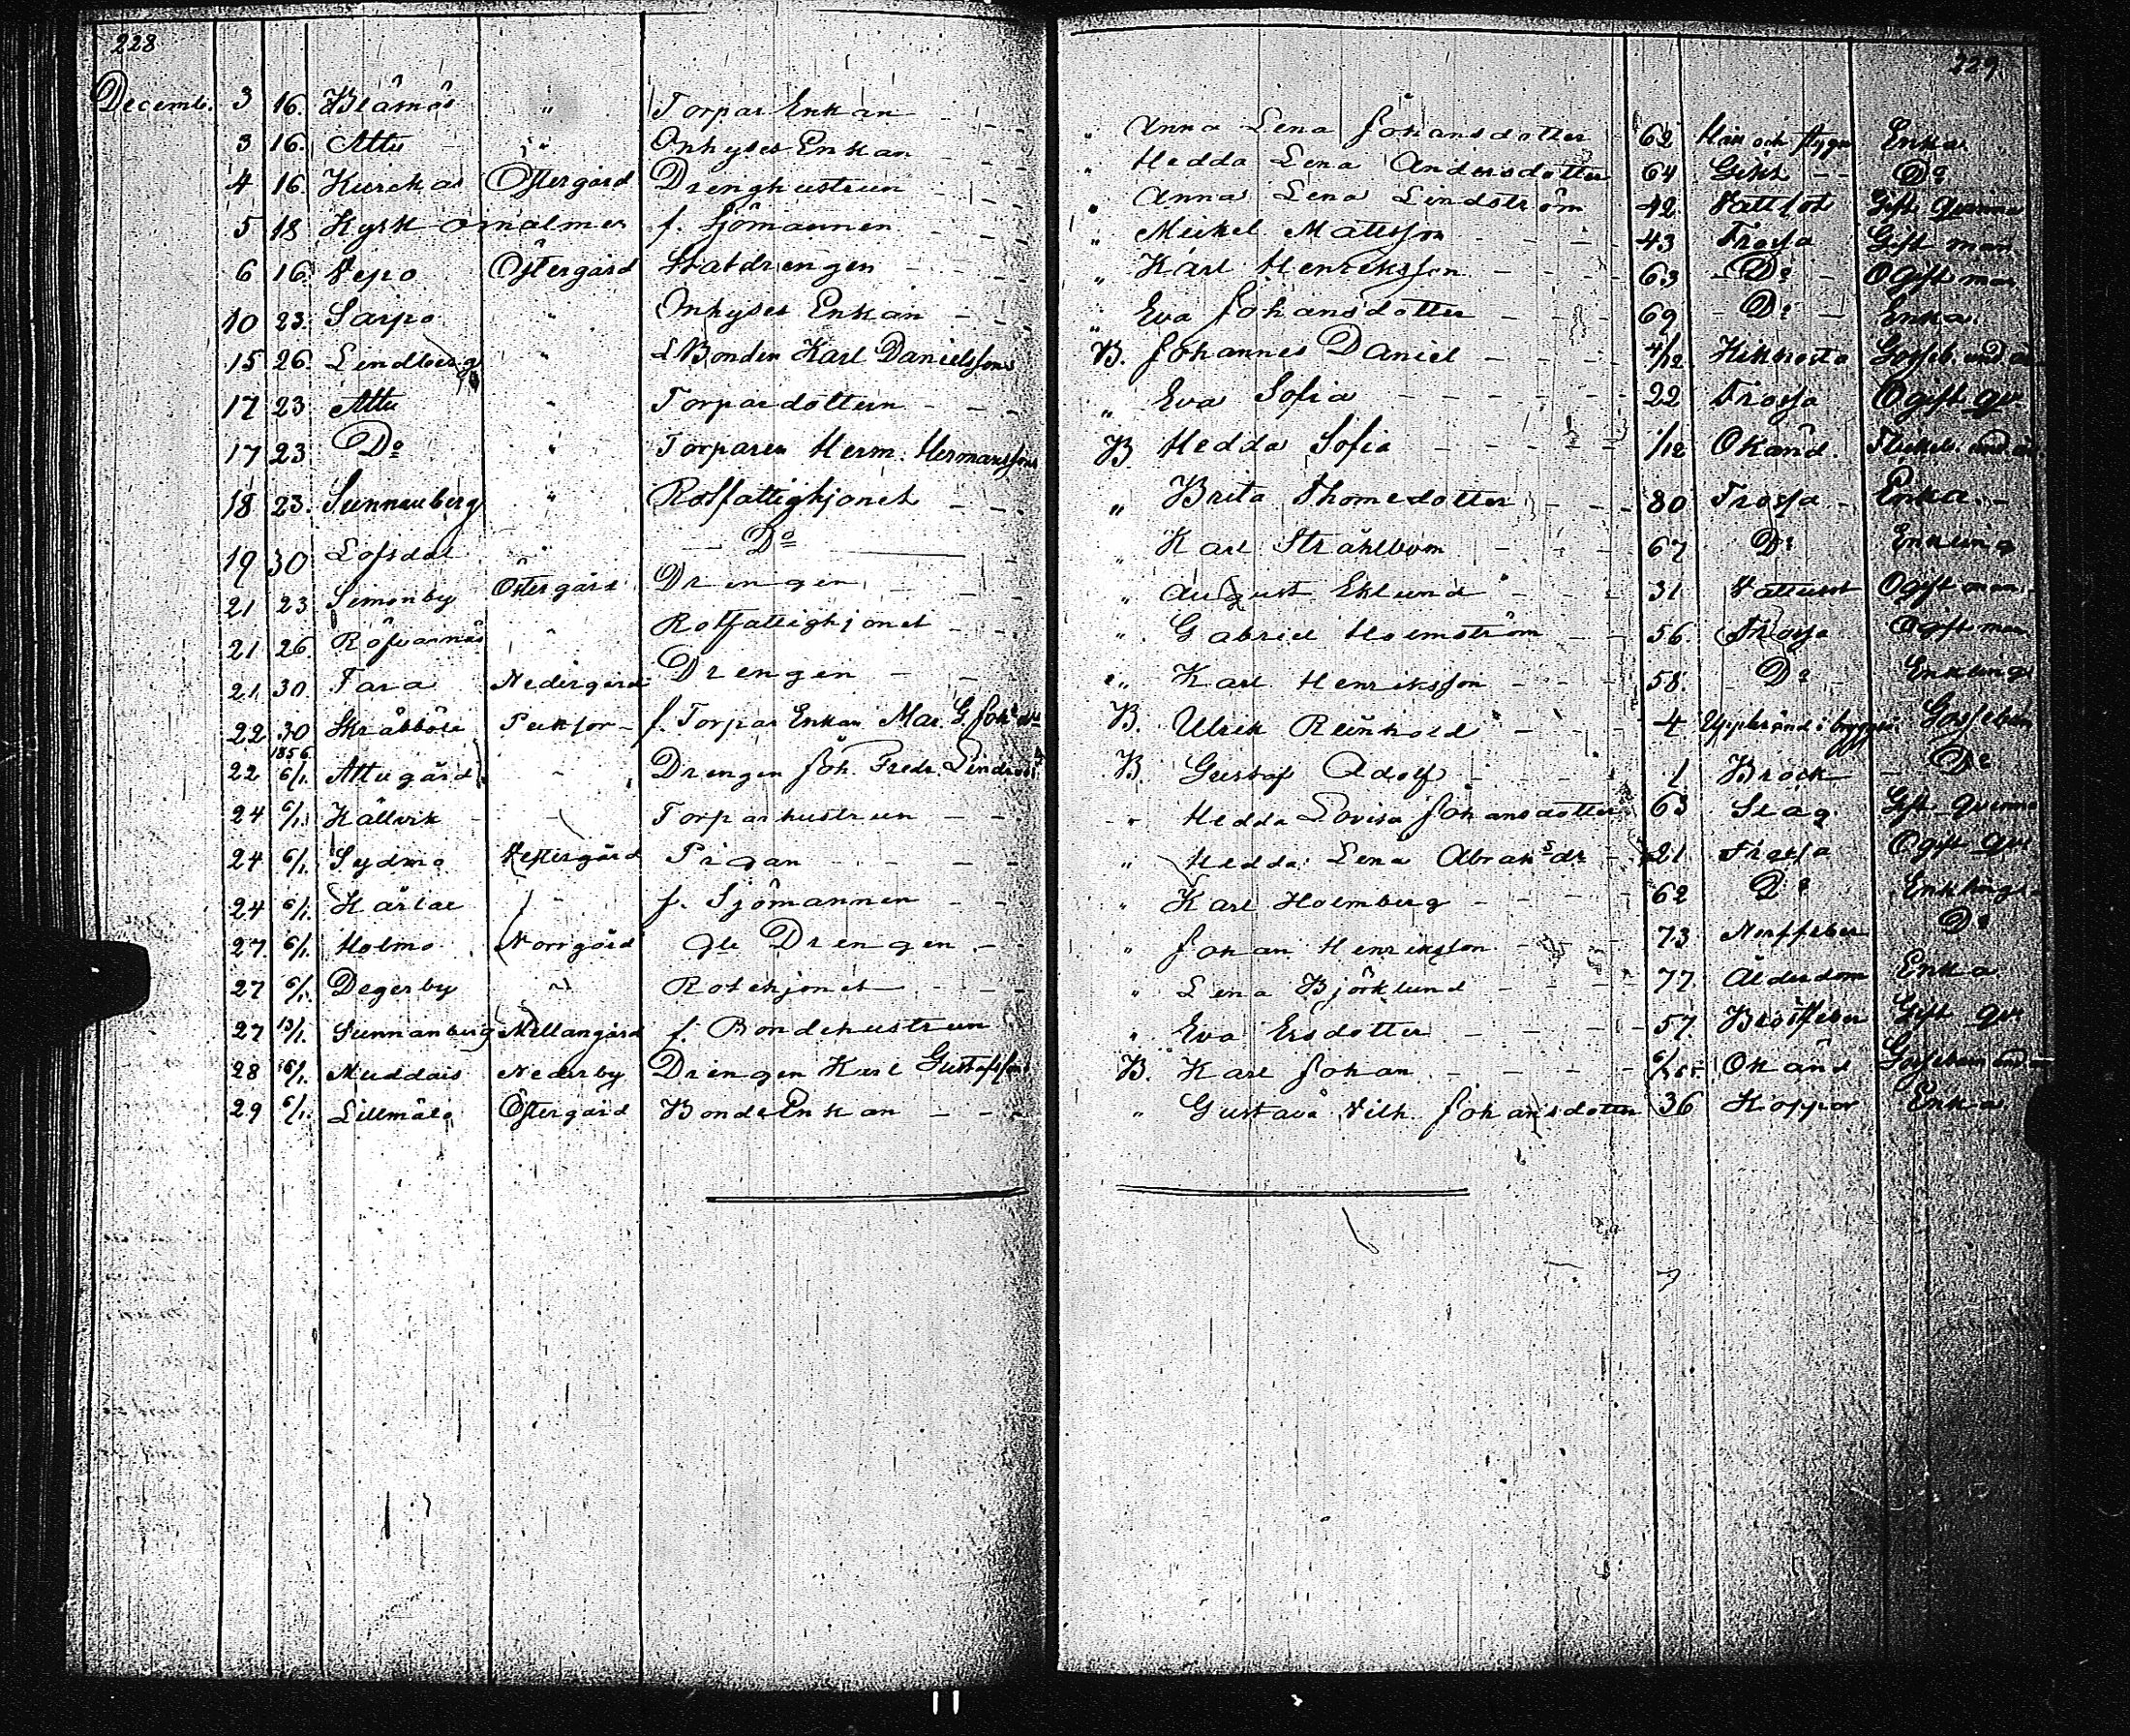 228
229
Decemb. 3 16. Blåmos " Torpar Enkan " Anna Lena Johansdotter 62 och Enka
3 16. Attu " Onhyses Enkan " Hedda Lena Andersdotter 64 Gikt Do
4 16. Kurckas Östergård Drenghustrun " Anna Lena Lindström 42 Vattsot Gift
5 18 Kyrkomalmen f. Sjömannen " Mickel Mattsson 43 Frossa Gift man
6 16. Vepo Östergård Statdrengen " Karl Henriksson 63 Do Ogift man
10 23. Sarpo " Onhyses Enkan " Eva Johansdotter 69 Do Enka
15 26. Lendberg " LBonden Karl Danielssons B. Johannes Daniel 4/12 Kikhosta Gosseb. und
17 23 Attu " Torpardottern " Eva Sofia 22 Frossa Ogift qv.
17 23 Do " Torparen Herm. Hermanssons B Hedda Sofia 1/12 Okänd. Flickeb. und
18 23. Sunnanberg " Rotfattighjonet " Brita Thomedotter 80 Frossa Enka
19 30 Lofsdal " Do " Karl Stråhlbom 67 Do Enkling
21 23 Simonby Östergård Drengen " August Eklund 31 Ogift man
21 26. Röfvarnäs " Rotfattighjonet " Gabriel Holmström 56 Frossa Ogift man
21 30. Tara Nedergård Drengen " Karl Henriksson 58. Do Enkling
22 30 Skräbböle f. Torpar Enkan Mar. G. B. Ulrik Reinhold 4 Uppbränd i Gossebarn
22 1856 6/1. Attugård " Drengen Joh. Fredr. B. Gustaf Adolf 1 Bråck Do
24 6/1. Källvik Torparhustrun " Hedda Lovisa Johansdotter 63 Slag Gift
24 6/1. Sydmo Vestergård Pigan " Hedda Lena Abrahsdr 21 Frossa Ogift
24 6/1. Kärlae " f. Sjömannen " Karl Holmberg 62 Do Enkling
27. 6/1. Holmo Norrgård Gle Drengen " Johan Henriksson 73 Nerffeber Do
27 6/1. Degerby " Rotehjonet " Lena Björklund 77. Ålderdom Enka
27 13/1. Sunnanberg Mellangård f. Bondehustrun " Eva Ersdotter 57. Bröstfeber Gift qv
28 6/1. Muddais Nederby Drengen Karl Gustafssons B. Karl Johan Okänd Gossebarn
29 6/1. Lillmälo Östergård Bonde Enkan " Gustava Vilh. Johansdotter 36 Koppor Enka